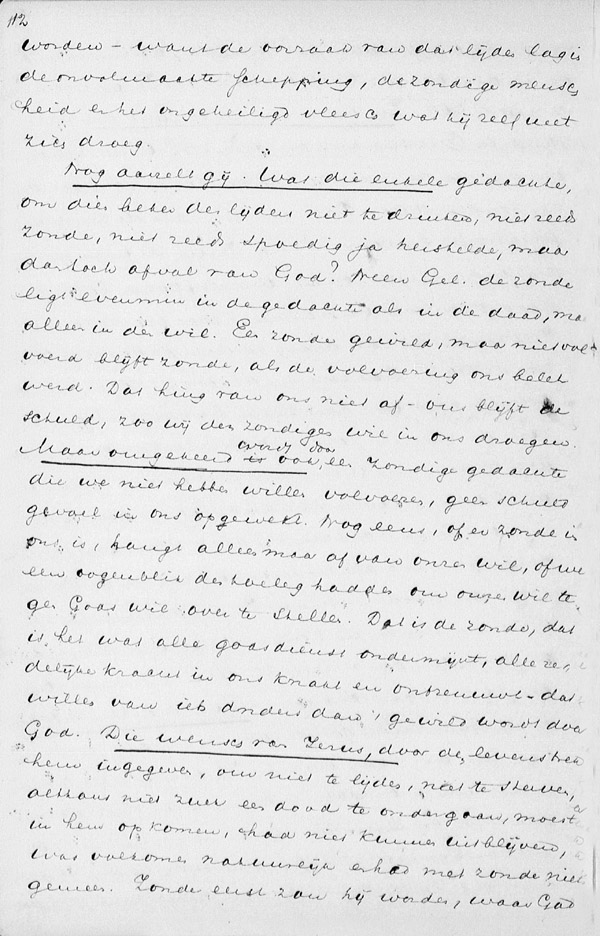 112
worden – want de oorzaak van dat lijden lag in
de onvolmaakte schepping, de zondige mensch
heid en het ongeheiligd vleesch wat hij zelf met
zich droeg.
Nog aarzelt gij. Was die enkele gedachte,
om dien beker des lijdens niet te drinken, niet reeds
zonde, niet reeds spoedig ja herstelde, maar
dan toch afval van God? Neen Gel. de zonde
ligt evenmin in de gedachte als in de daad, maar
alleen in den wil. Een zonde gewild, maar niet vol-
voerd blijft zonde, als de volvoering ons belet
werd. Dat hing van ons niet af – ons blijft de
schuld, zoo wij den zondigen wil in ons droegen.
Maar omgekeerd wordt door een zondige gedachte
die we niet hebben willen volvoeren, geen schuld
gevoel in ons opgewekt. Nog eens, of er zonde in
ons is, hangt alleen maar af van onzen wil, of we
een oogenblik den toeleg hadden om onzen wil te-
gen Gods wil over te stellen. Dat is de zonde, dat
is het wat alle godsdienst ondermijnt, alle ze-
delijke kracht in ons knakt en ontzenuwt – dat
willen van iets anders dan gewild wordt door
God. Die wensch van Jezus, door den levenstrek
hem ingegeven, om niet te lijden, niet te sterven,
althans niet zulk een dood te ondergaan, moest
in hem opkomen, had niet kunnen uitblijven,
was volkomen natuurlijk en had met zonde niets
gemeen. Zonde eerst zou hij worden, waar God